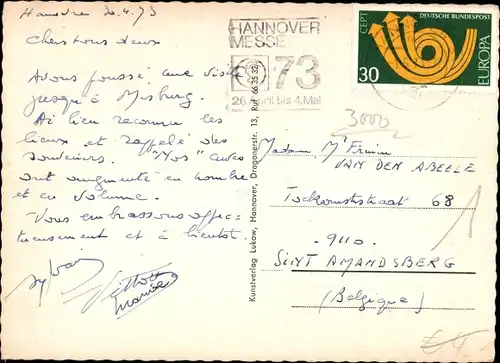 Hanovre 30.4.73
Chers tous deux
Avons poussé une visite
jusqu'à Misburg.
Ai bien reconnu les
lieux et rappelé des
souvenirs. "Nos" caves
ont augmenté en nombre
et en volume.
Vous embrassons affec-
tueusement et à bientôt.
Sylvain
HANNOVER
MESSE
73
26. April bis 4. Mai
CEPT
DEUTSCHE BUNDESPOST
EUROPA
30
Kunstverlag Lukow, Hannover, Dragonerstr. 13, Ruf 66 35 32
3000
Madame, Mr Firmin
VAN DEN ABEELE
Toekomststraat 68
9110
SINT AMANDSBERG
(Belgique)